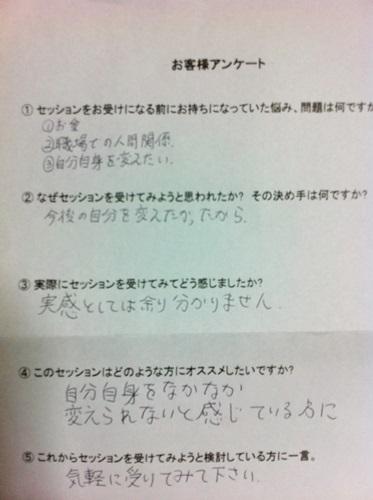 お客様アンケート
① セッションをお受けになる前にお持ちになっていた悩み、問題は何ですか
①お金
②職場での人間関係.
③自分自身を変えたい.
② なぜセッションを受けてみようと思われたか? その決め手は何ですか?
今後の自分を変えたかったから.
③ 実際にセッションを受けてみてどう感じましたか?
実感としては余り分かりません.
④ このセッションはどのような方にオススメしたいですか?
自分自身をなかなか
変えられないと感じている方に
⑤ これからセッションを受けてみようと検討している方に一言。
気軽に受けてみて下さい.